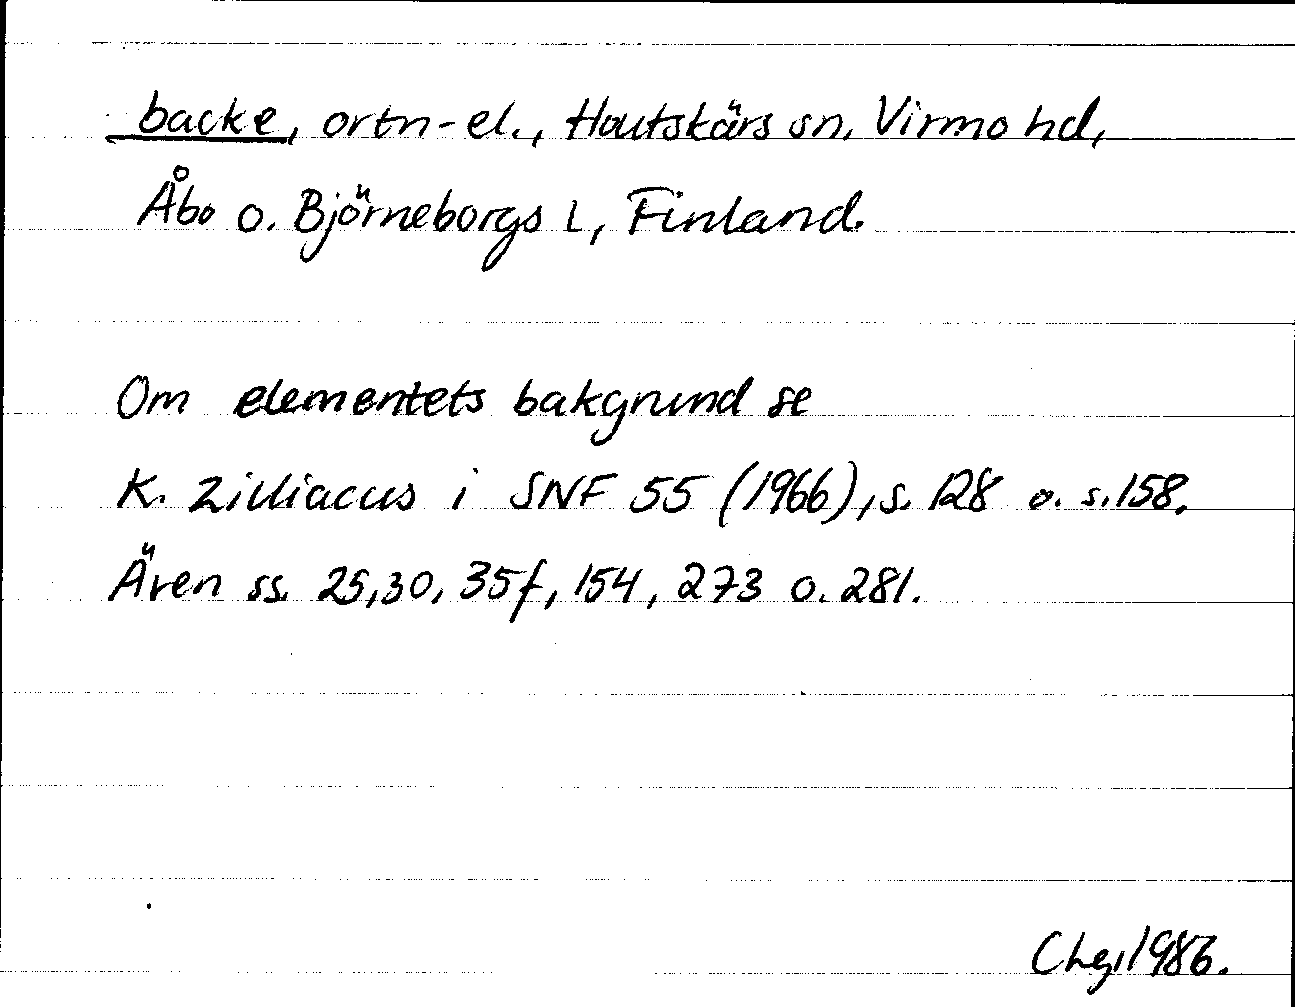 backe, ortn-el., Houtskärs sn, Virmo hd,
Åbo o. Björneborgs l, Finland.
Om elementets bakgrund se
K. Zilliacus i SNF 55 (1966), s. 128 o. s. 158.
Även ss. 25, 30, 35f, 154, 273 o. 281.
Chg, 1986.